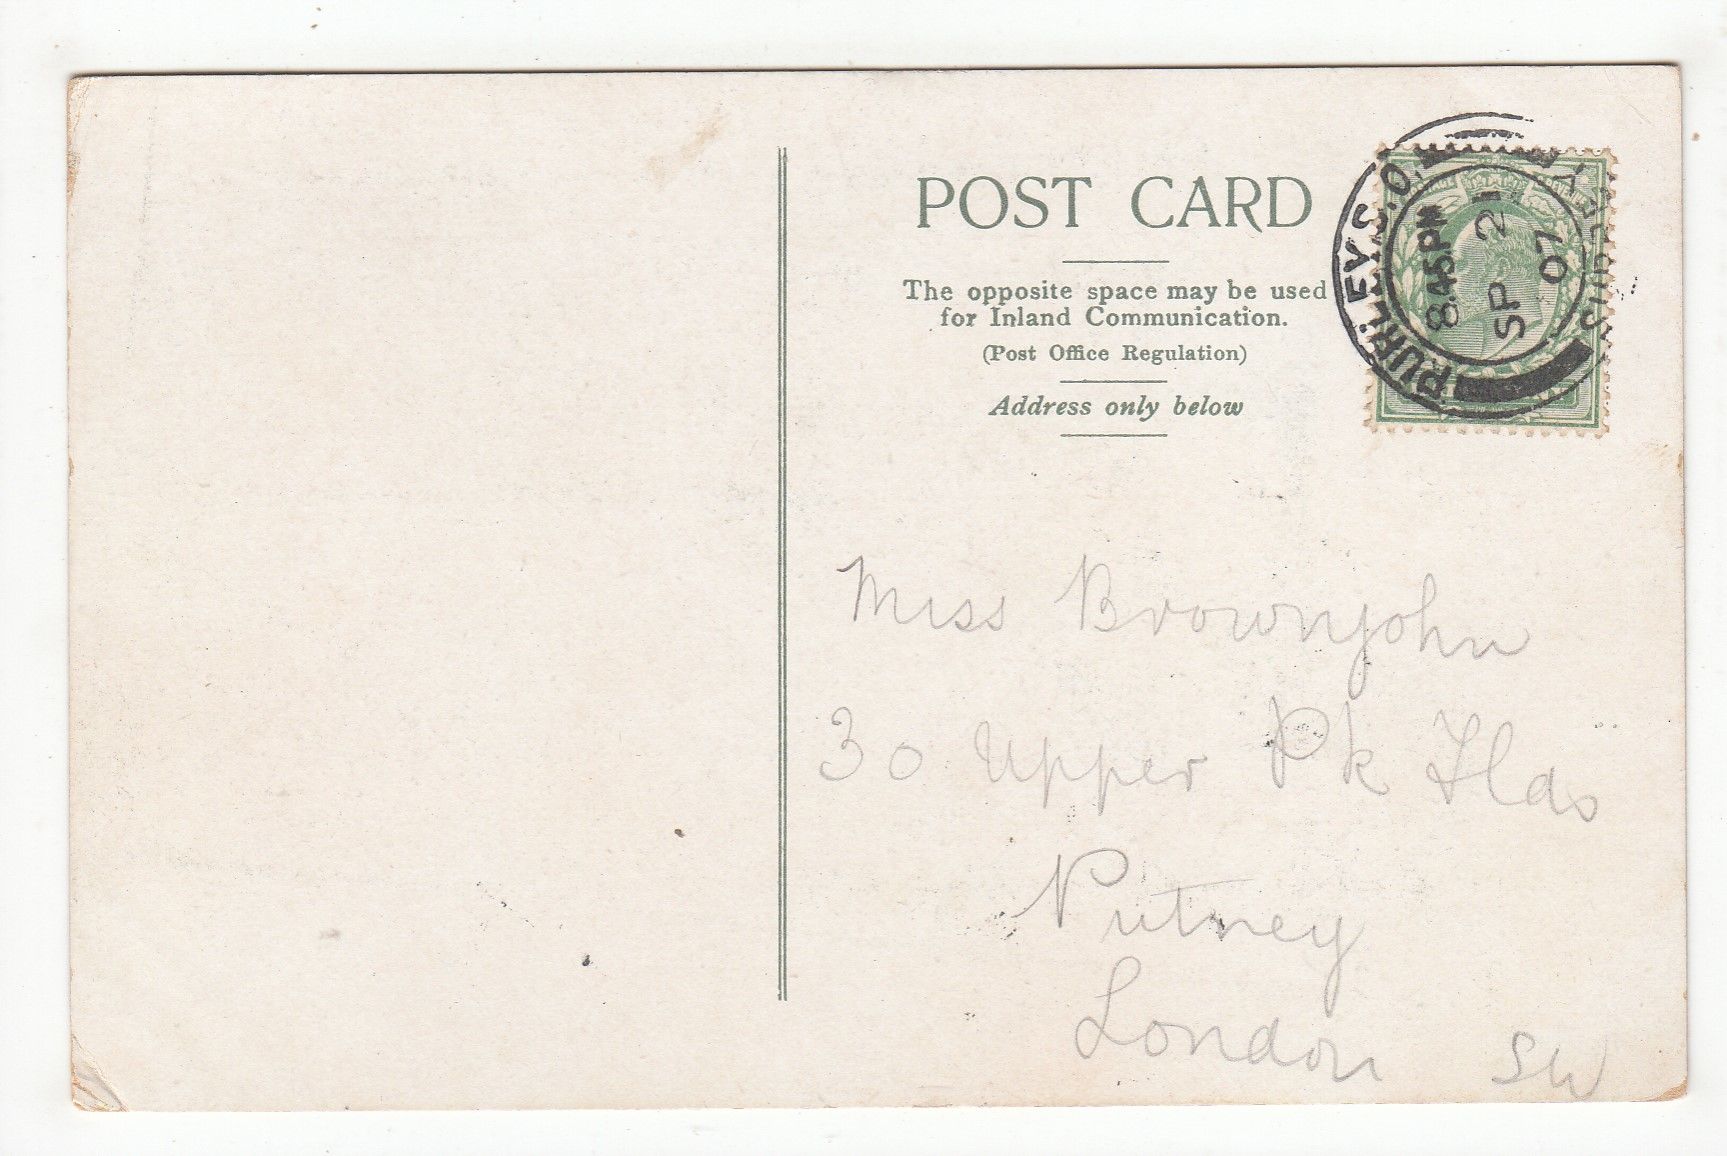 POST CARD
The opposite space may be used
for Inland Communication.
(Post Office Regulation)
Address only below
PURLEY S.O.
SURREY
8.45 PM
SP 21
07
Miss Brownjohn
30 Upper Pk Flds
Putney
London SW